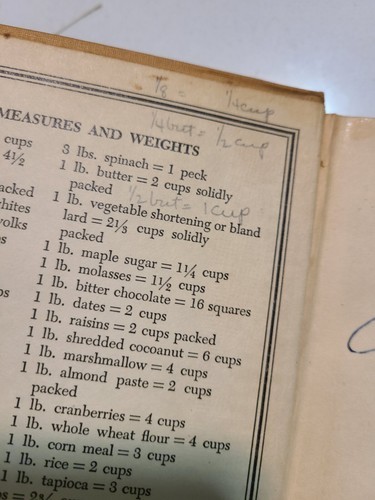 1/8 = 1/4 cup
1/4 but = 1/2 cup
MEASURES AND WEIGHTS
cups
4½
3 lbs. spinach = 1 peck
1 lb. butter = 2 cups solidly
packed
1/2 but = 1 cup
1 lb. vegetable shortening or bland
lard = 2⅓ cups solidly
packed
1 lb. maple sugar = 1¼ cups
1 lb. molasses = 1½ cups
1 lb. bitter chocolate = 16 squares
1 lb. dates = 2 cups
1 lb. raisins = 2 cups packed
1 lb. shredded cocoanut = 6 cups
1 lb. marshmallow = 4 cups
1 lb. almond paste = 2 cups
packed
1 lb. cranberries = 4 cups
1 lb. whole wheat flour = 4 cups
1 lb. corn meal = 3 cups
1 lb. rice = 2 cups
1 lb. tapioca = 3 cups